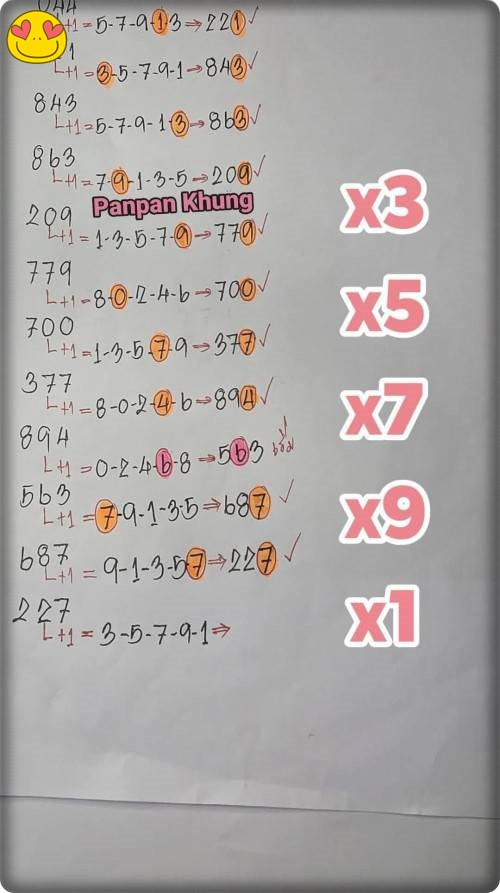 044
L+1 = 5-7-9-1-3 ⇒ 221 ✓
1
L+1 = 3-5-7-9-1 ⇒ 843 ✓
843
L+1 = 5-7-9-1-3 ⇒ 863 ✓
863
L+1 = 7-9-1-3-5 ⇒ 209 ✓
Panpan Khung
209
L+1 = 1-3-5-7-9 ⇒ 779 ✓
779
L+1 = 8-0-2-4-6 ⇒ 700 ✓
700
L+1 = 1-3-5-7-9 ⇒ 377 ✓
377
L+1 = 8-0-2-4-6 ⇒ 894 ✓
894
L+1 = 0-2-4-6-8 ⇒ 563
563
L+1 = 7-9-1-3-5 ⇒ 687 ✓
687
L+1 = 9-1-3-5-7 ⇒ 227 ✓
227
L+1 = 3-5-7-9-1 ⇒
x3
x5
x7
x9
x1